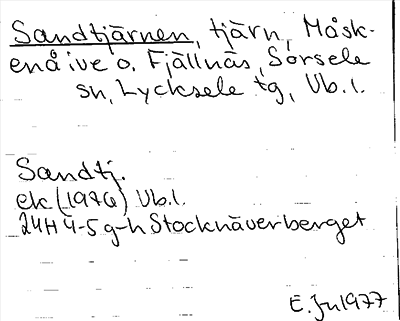 Sandtjärnen, tjärn, Måsk-
enåive o. Fjällnäs, Sorsele
sn, Lycksele tg, Vb.l.
Sandtj.
ek (1976) Vb.l.
24H 4-5 g-h Stocknäverberget
E. Jn 1977